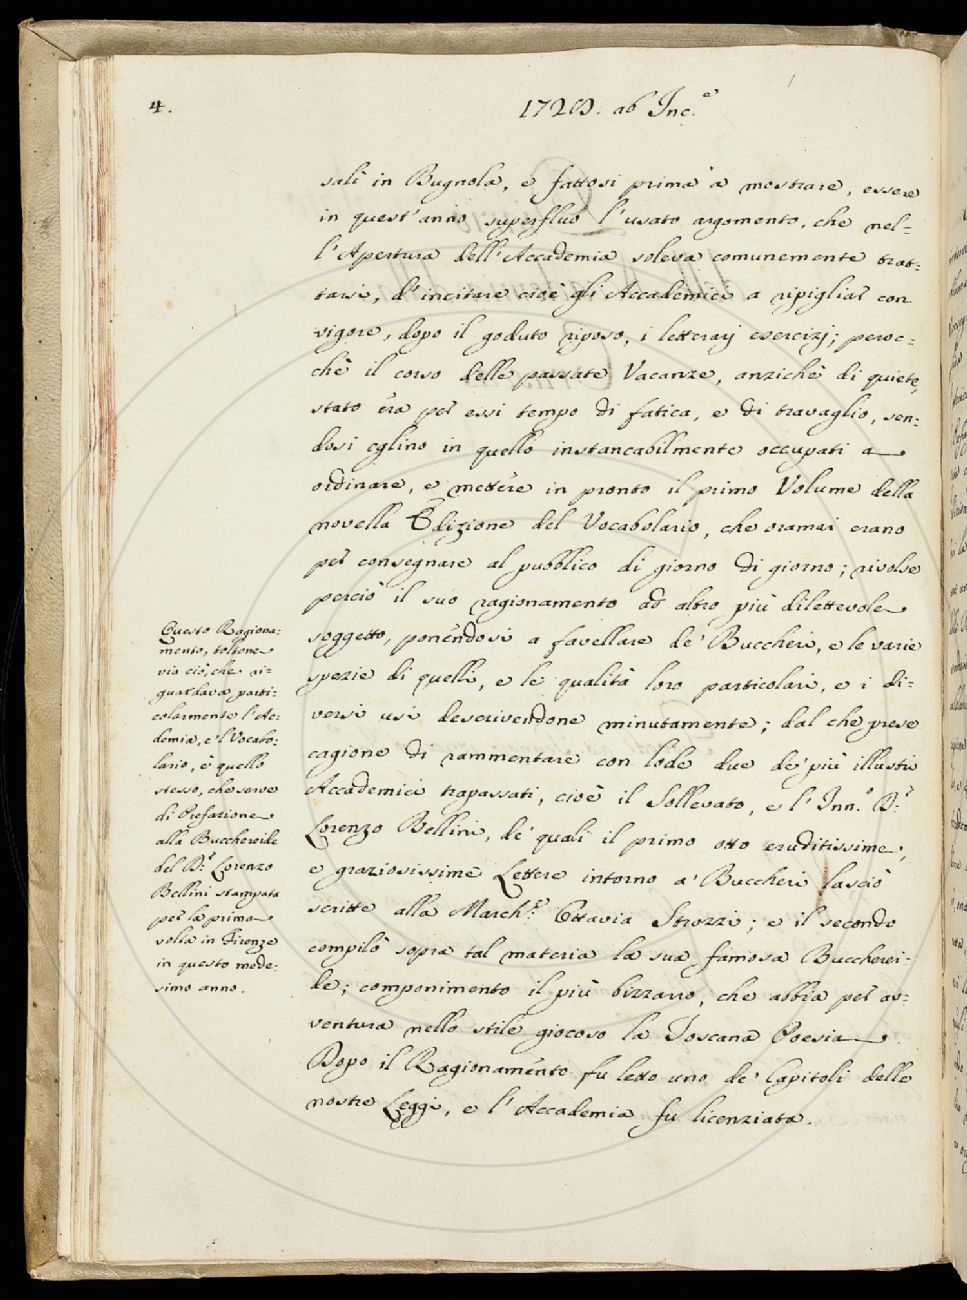 4.
1728. ab Inc.e
salì in Bugnola, e fattosi prima a mostrare, essere
in quest'anno superfluo l'usato argomento, che nel=
l'Apertura dell'Accademia soleva comunemente trat=
tarsi, d'incitare cioè gli Accademici a ripigliar con
vigore, dopo il goduto riposo, i letterarj esercizj; peroc=
chè il corso delle passate Vacanze, anzichè di quiete,
stato era per essi tempo di fatica, e di travaglio, sen=
dosi eglino in quello instancabilmente occupati a
ordinare, e mettere in pronto il primo Volume della
novella Edizione del Vocabolario, che oramai erano
per consegnare al pubblico di giorno di giorno; rivolse
perciò il suo ragionamento ad altro più dilettevole
soggetto, ponendosi a favellare de' Buccheri, e le varie
spezie di quelli, e le qualità loro particolari, e i di=
versi usi descrivendone minutamente; dal che prese
cagione di rammentare con lode due de' più illustri
Accademici trapassati, cioè il Sollevato, e l'Inn.o D.r
Lorenzo Bellini, de' quali il primo otto eruditissime,
e graziosissime Lettere intorno a' Buccheri lasciò
scritte alla March.a Ottavia Strozzi; e il secondo
compilò sopra tal materia la sua famosa Bucherei=
de; componimento il più bizzarro, che abbia per av=
ventura nello stile giocoso la Toscana Poesia
Dopo il Ragionamento fu letto uno de' Capitoli delle
nostre Leggi, e l'Accademia fu licenziata.
Questo Ragiona=
mento, toltone
via ciò, che ri=
guardava parti=
colarmente l'Ac=
demia, e 'l Vocabo=
lario, è quello
stesso, che serve
di Prefazione
alla Bucchereide
del D.r Lorenzo
Bellini stampata
per la prima
volta in Firenze
in questo mede=
simo anno.